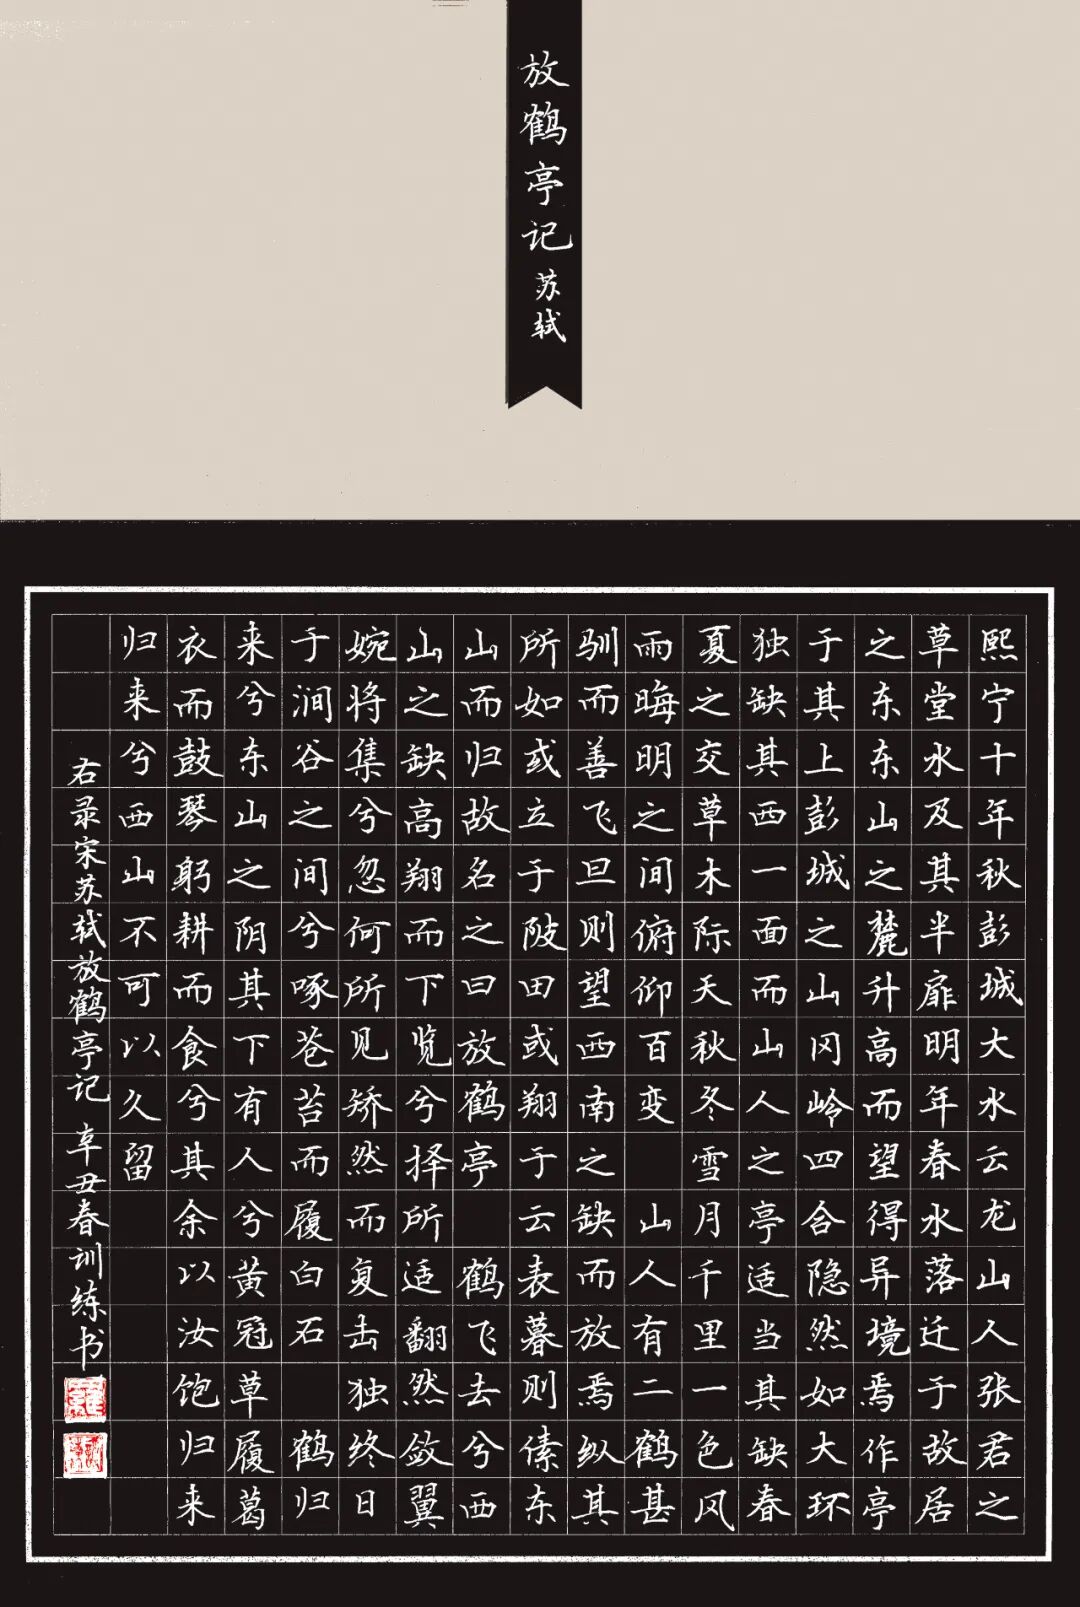 放鹤亭记 苏轼
熙宁十年秋彭城大水云龙山人张君之
草堂水及其半扉明年春水落迁于故居
之东东山之麓升高而望得异境焉作亭
于其上彭城之山冈岭四合隐然如大环
独缺其西一面而山人之亭适当其缺春
夏之交草木际天秋冬雪月千里一色风
雨晦明之间俯仰百变 山人有二鹤甚
驯而善飞旦则望西南之缺而放焉纵其
所如或立于陂田或翔于云表暮则傃东
山而归故名之曰放鹤亭 鹤飞去兮西
山之缺高翔而下览兮择所适翻然敛翼
婉将集兮忽何所见矫然而复击独终日
于涧谷之间兮啄苍苔而履白石 鹤归
来兮东山之阴其下有人兮黄冠草履葛
衣而鼓琴躬耕而食兮其余以汝饱归来
归来兮西山不可以久留
右录宋苏轼放鹤亭记 辛丑春训练书